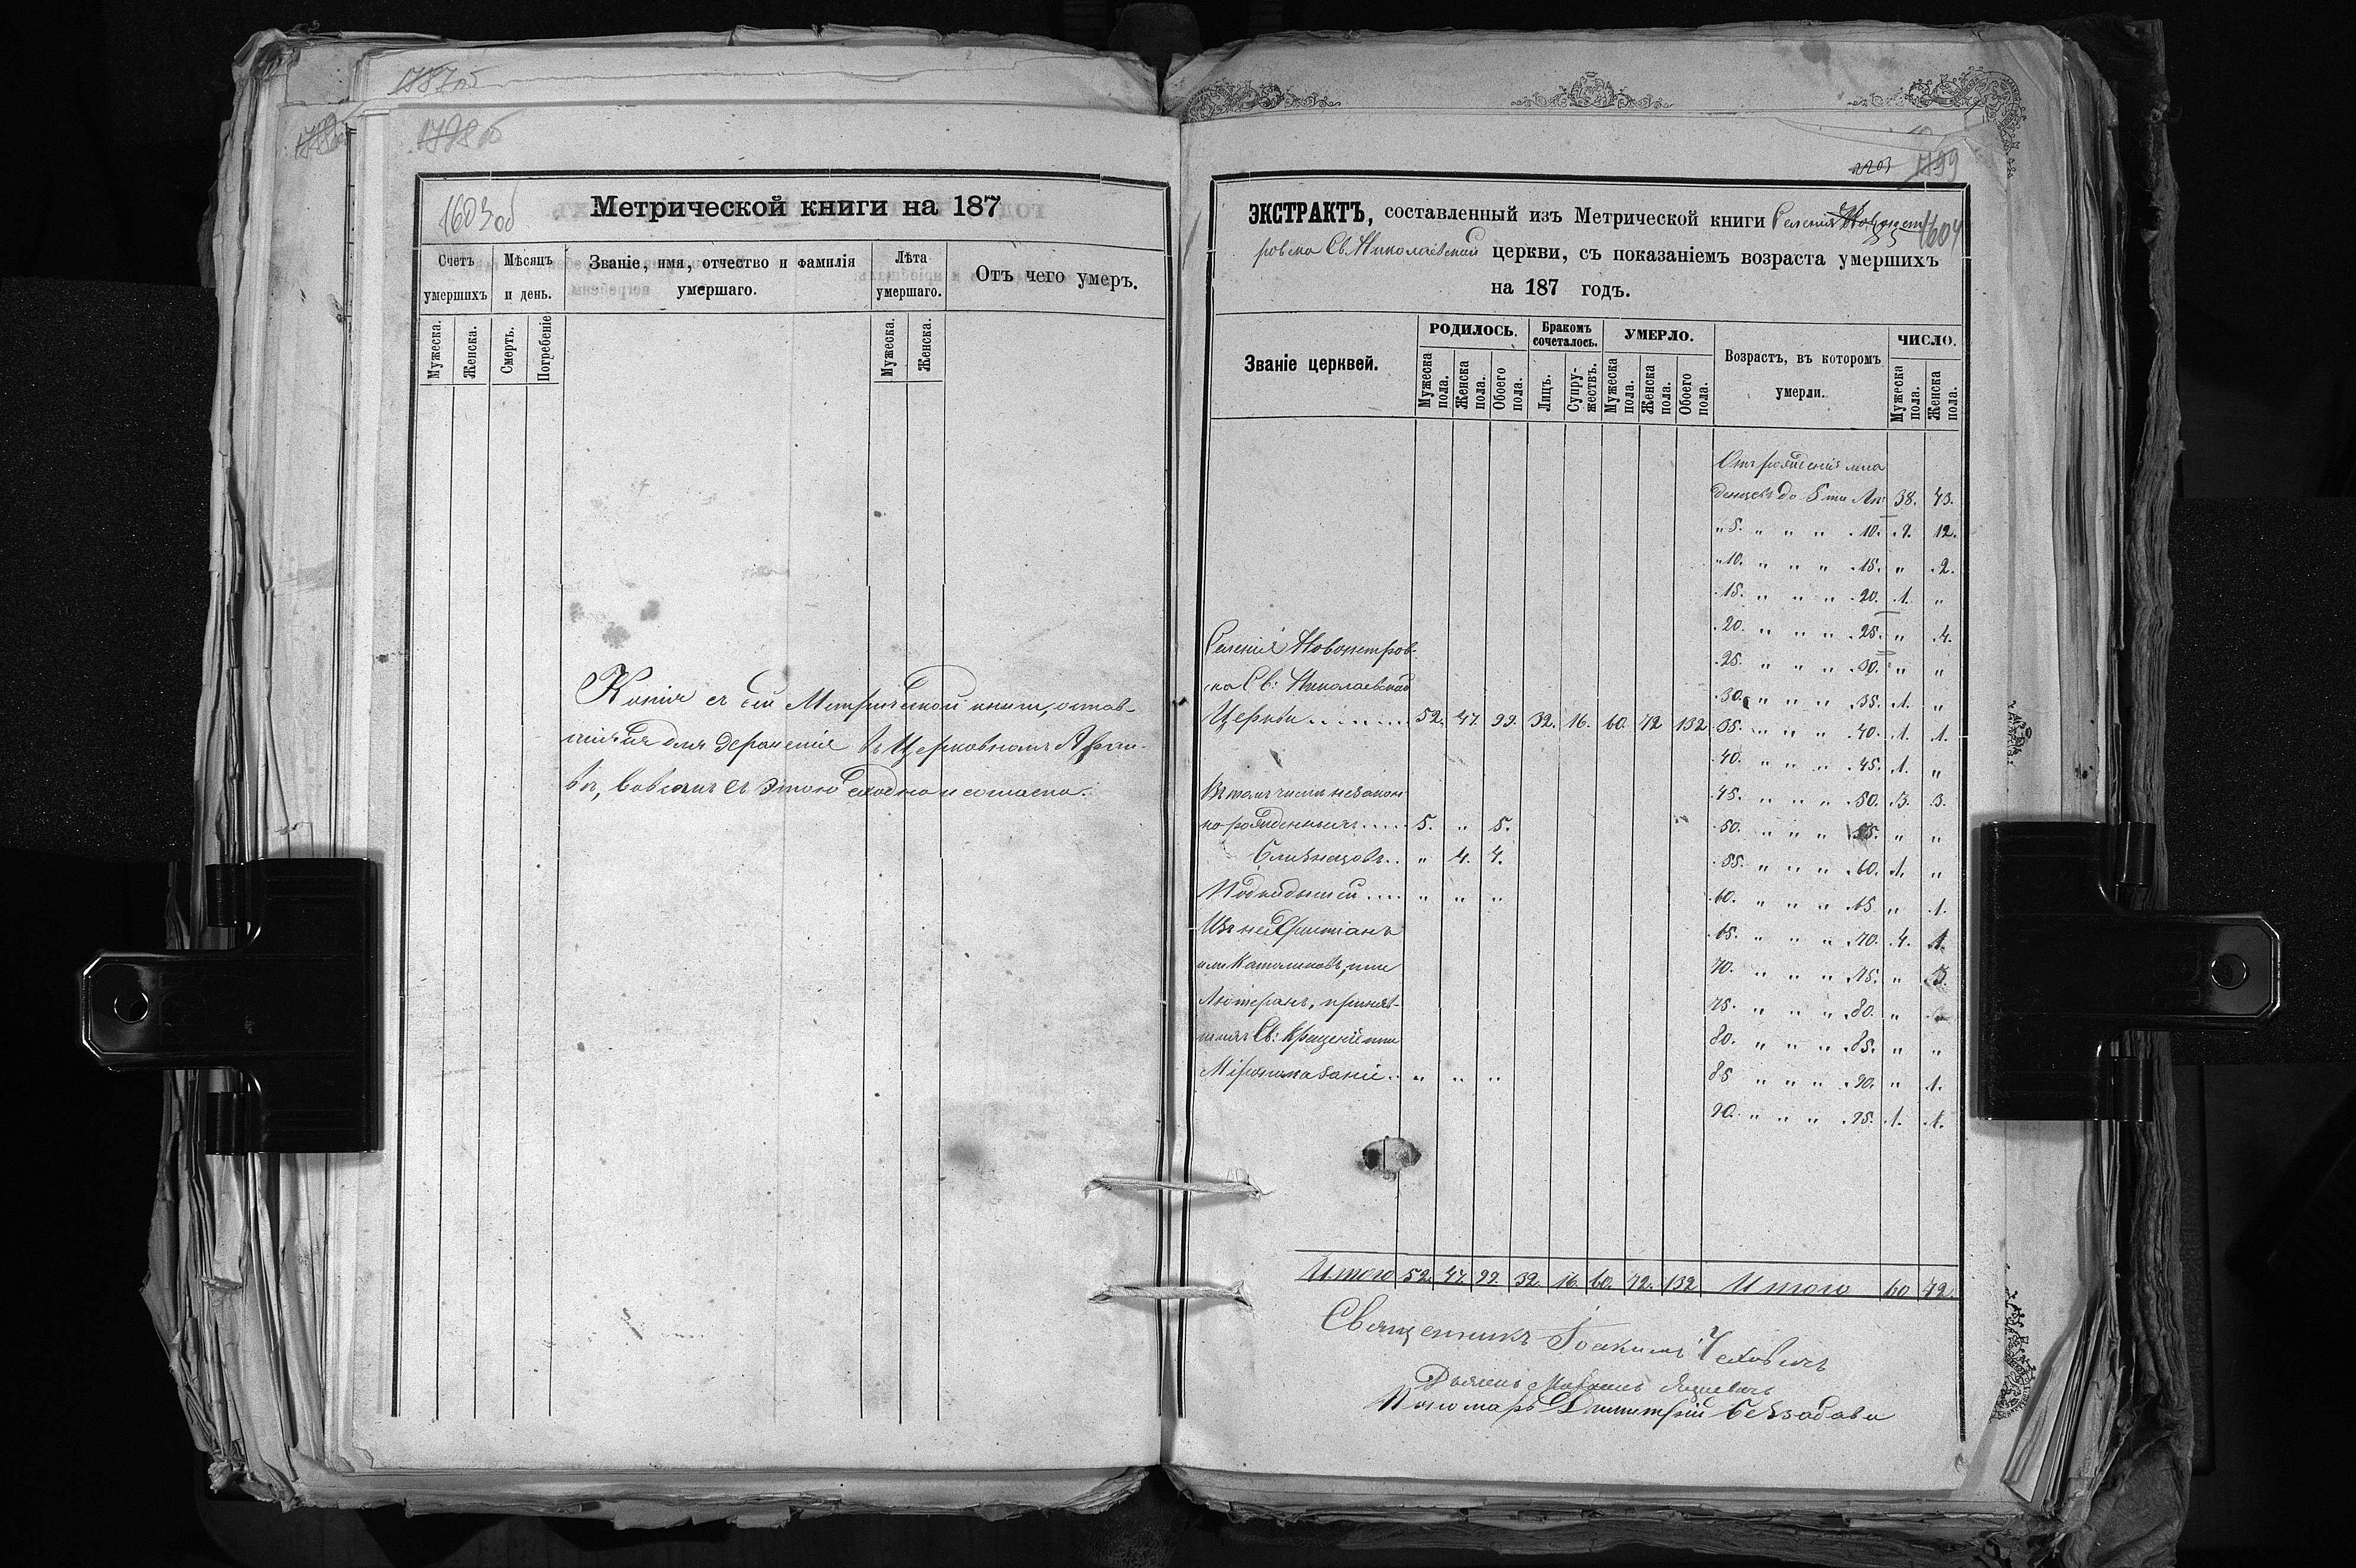 1787об
1798об
1603об
Метрической книги на 187
Счетъ умершихъ
Мѣсяцъ и день.
Званіе, имя, отчество и фамилія умершаго.
Лѣта умершаго.
Отъ чего умеръ.
Мужеска.
Женска.
Смерть.
Погребеніе
Мужеска.
Женска.
Копія съ сей Метрической книги, остав-
шаяся для храненія въ Церковномъ Архи-
вѣ, вовсемъ съ этою сходна и согласна.
2203
1799
1604
ЭКСТРАКТЪ, составленный изъ Метрической книги Селенія Новопет
ровска Св. Николаевской церкви, съ показаніемъ возраста умершихъ
на 187 годъ.
Званіе церквей.
РОДИЛОСЬ.
Бракомъ сочеталось.
УМЕРЛО.
Возрастъ, въ которомъ умерли.
ЧИСЛО.
Мужеска пола.
Женска пола.
Обоего пола.
Лицъ.
Супру-жествъ.
Мужеска пола.
Женска пола.
Обоего пола.
Мужеска пола.
Женска пола.
Отъ рожденія мла
денцевъ до 5 ти Лѣ: 38. 43.
„ 5. „ „ „ 10. 9. 12.
„ 10. „ „ „ 15. „ 2.
15. „ „ „ 20. 1. „
20. „ „ „ 25. „ 4.
25. „ „ „ 30. „ „
30. „ „ „ 35. 1. „
35. „ „ „ 40. 1. 1.
40. „ „ „ 45. 1. „
45. „ „ „ 50. 3. 3.
50. „ „ „ 55. „ „
55. „ „ „ 60. 1. „
60. „ „ „ 65. „ 1.
65. „ „ „ 70. 4. 1.
70. „ „ „ 75. „ 3.
75. „ „ „ 80. „
80. „ „ „ 85. „ „
85 „ „ „ 90. „ 1.
90. „ „ „ 95. 1. 1.
Селенія Новопетров-
ска Св: Николаевской
Церкви . . . . . . . . 52. 47. 99. 32. 16. 60. 72 132
Въ томъ числѣ незакон
но рожденныхъ . . . . . 5. „ 5.
Близнецовъ . . „ 4. 4.
Подкидышей . . . . „ „ „
Изъ нехристіанъ
или Католиковъ, или
Лютеранъ, приняв-
шихъ Св: Крещеніе или
Мѵропомазаніе . „ „ „
Итого 52. 47. 99. 32. 16. 60. 72. 132 Итого 60 72.
Священникъ Іоакимъ Чеховичъ
Дьяконъ
Пономарь Димитрій Беззабава